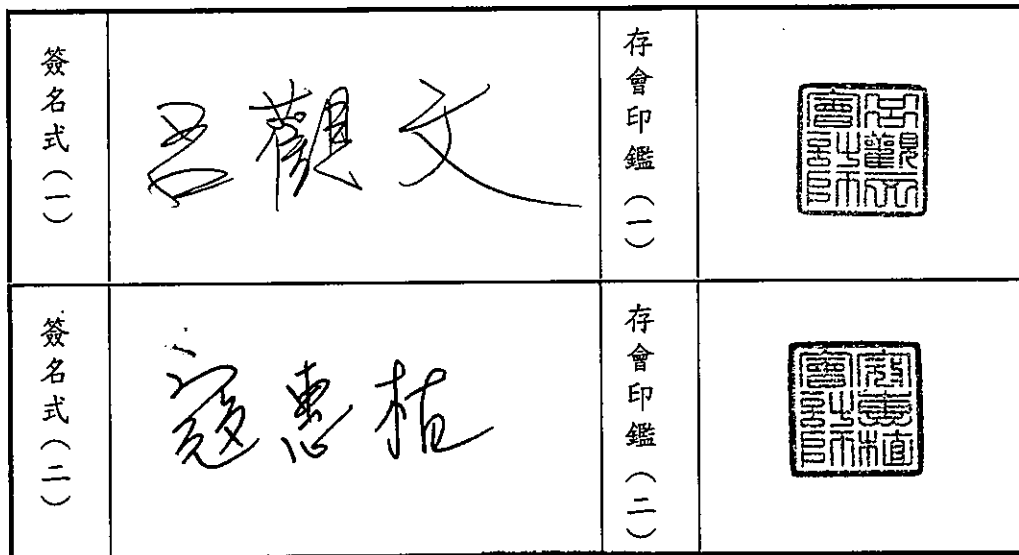 簽名式（一）
呂觀文
存會印鑑（一）
呂觀文會計師
簽名式（二）
寇惠植
存會印鑑（二）
寇惠植會計師